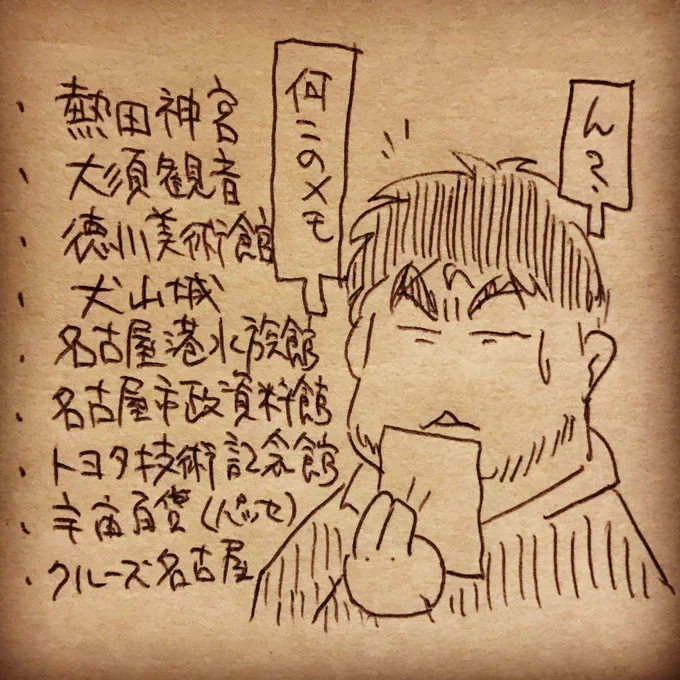 ん?
何このメモ
・熱田神宮
・大須観音
・徳川美術館
・犬山城
・名古屋港水族館
・名古屋市政資料館
・トヨタ技術記念館
・宇宙百貨(パッセ)
・クルーズ名古屋